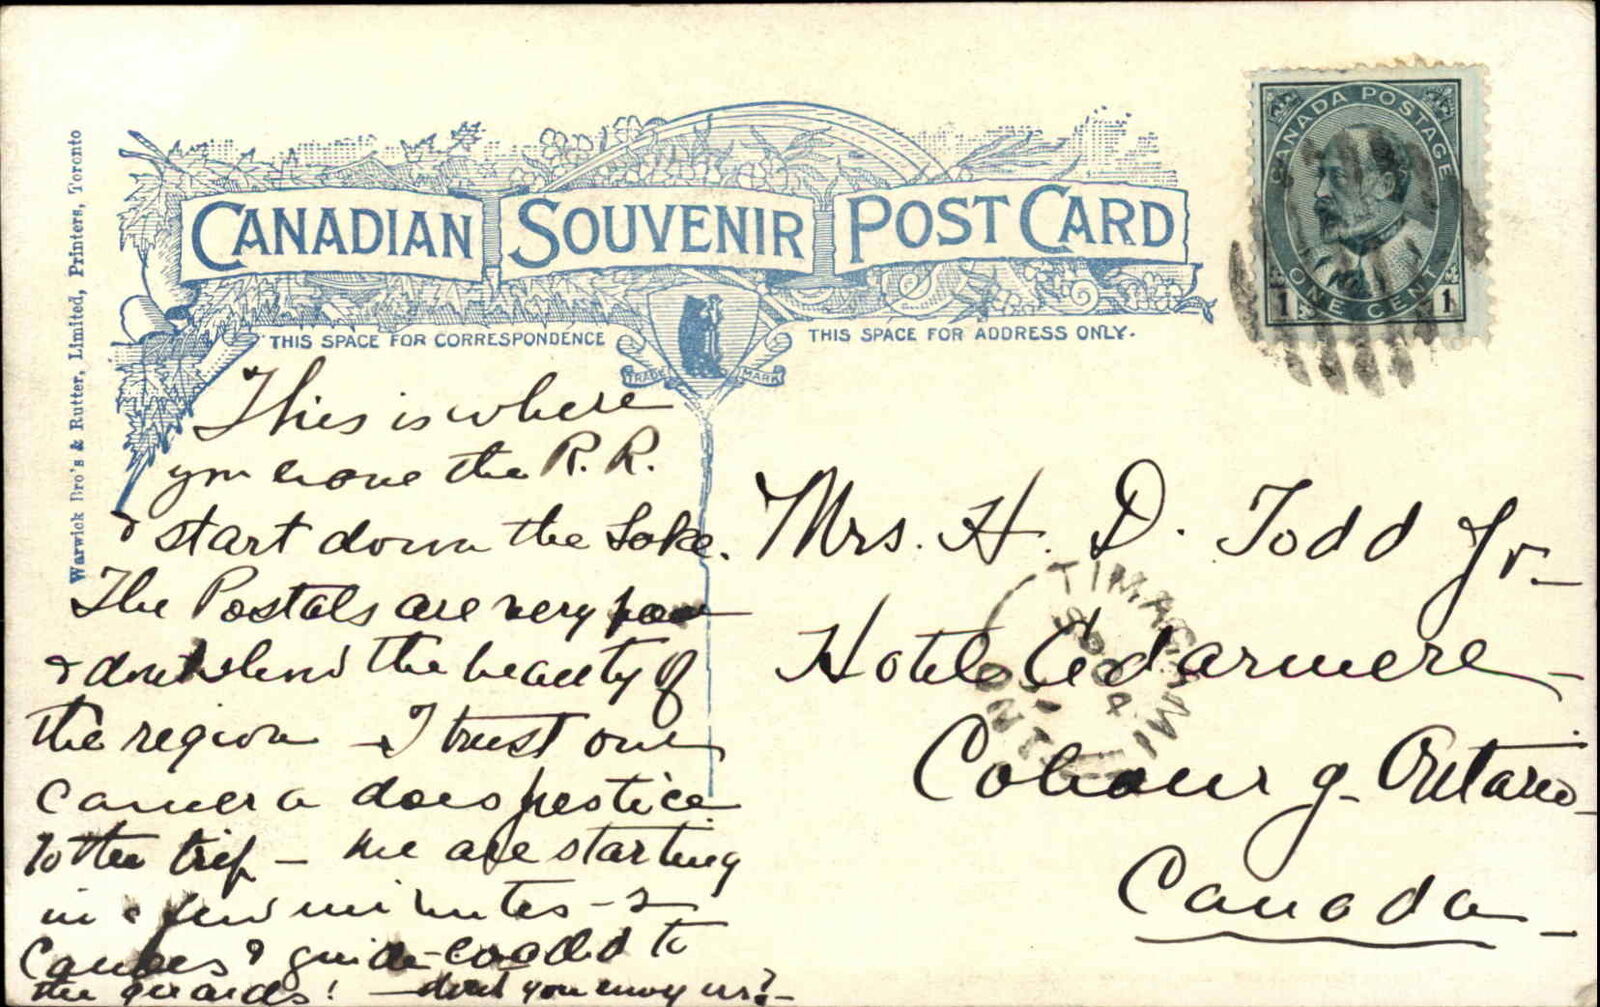 CANADIAN SOUVENIR POST CARD
THIS SPACE FOR CORRESPONDENCE
THIS SPACE FOR ADDRESS ONLY.
TRADE MARK
Warwick Bro's & Rutter, Limited, Printers, Toronto
CANADA POSTAGE
1 ONE CENT 1
TIMAGAMI
ONT
This is where
you leave the R.R.
& start down the Lake.
The Postals are very poor
& don't show the beauty of
the region - I trust our
camera does justice
to the trip - We are starting
in a few minutes - 2
Canoes & guide loaded to
the guards! - don't you envy us? -
Mrs. H. D. Todd Jr -
Hotel Cedarmere -
Cobourg - Ontario -
Canada -